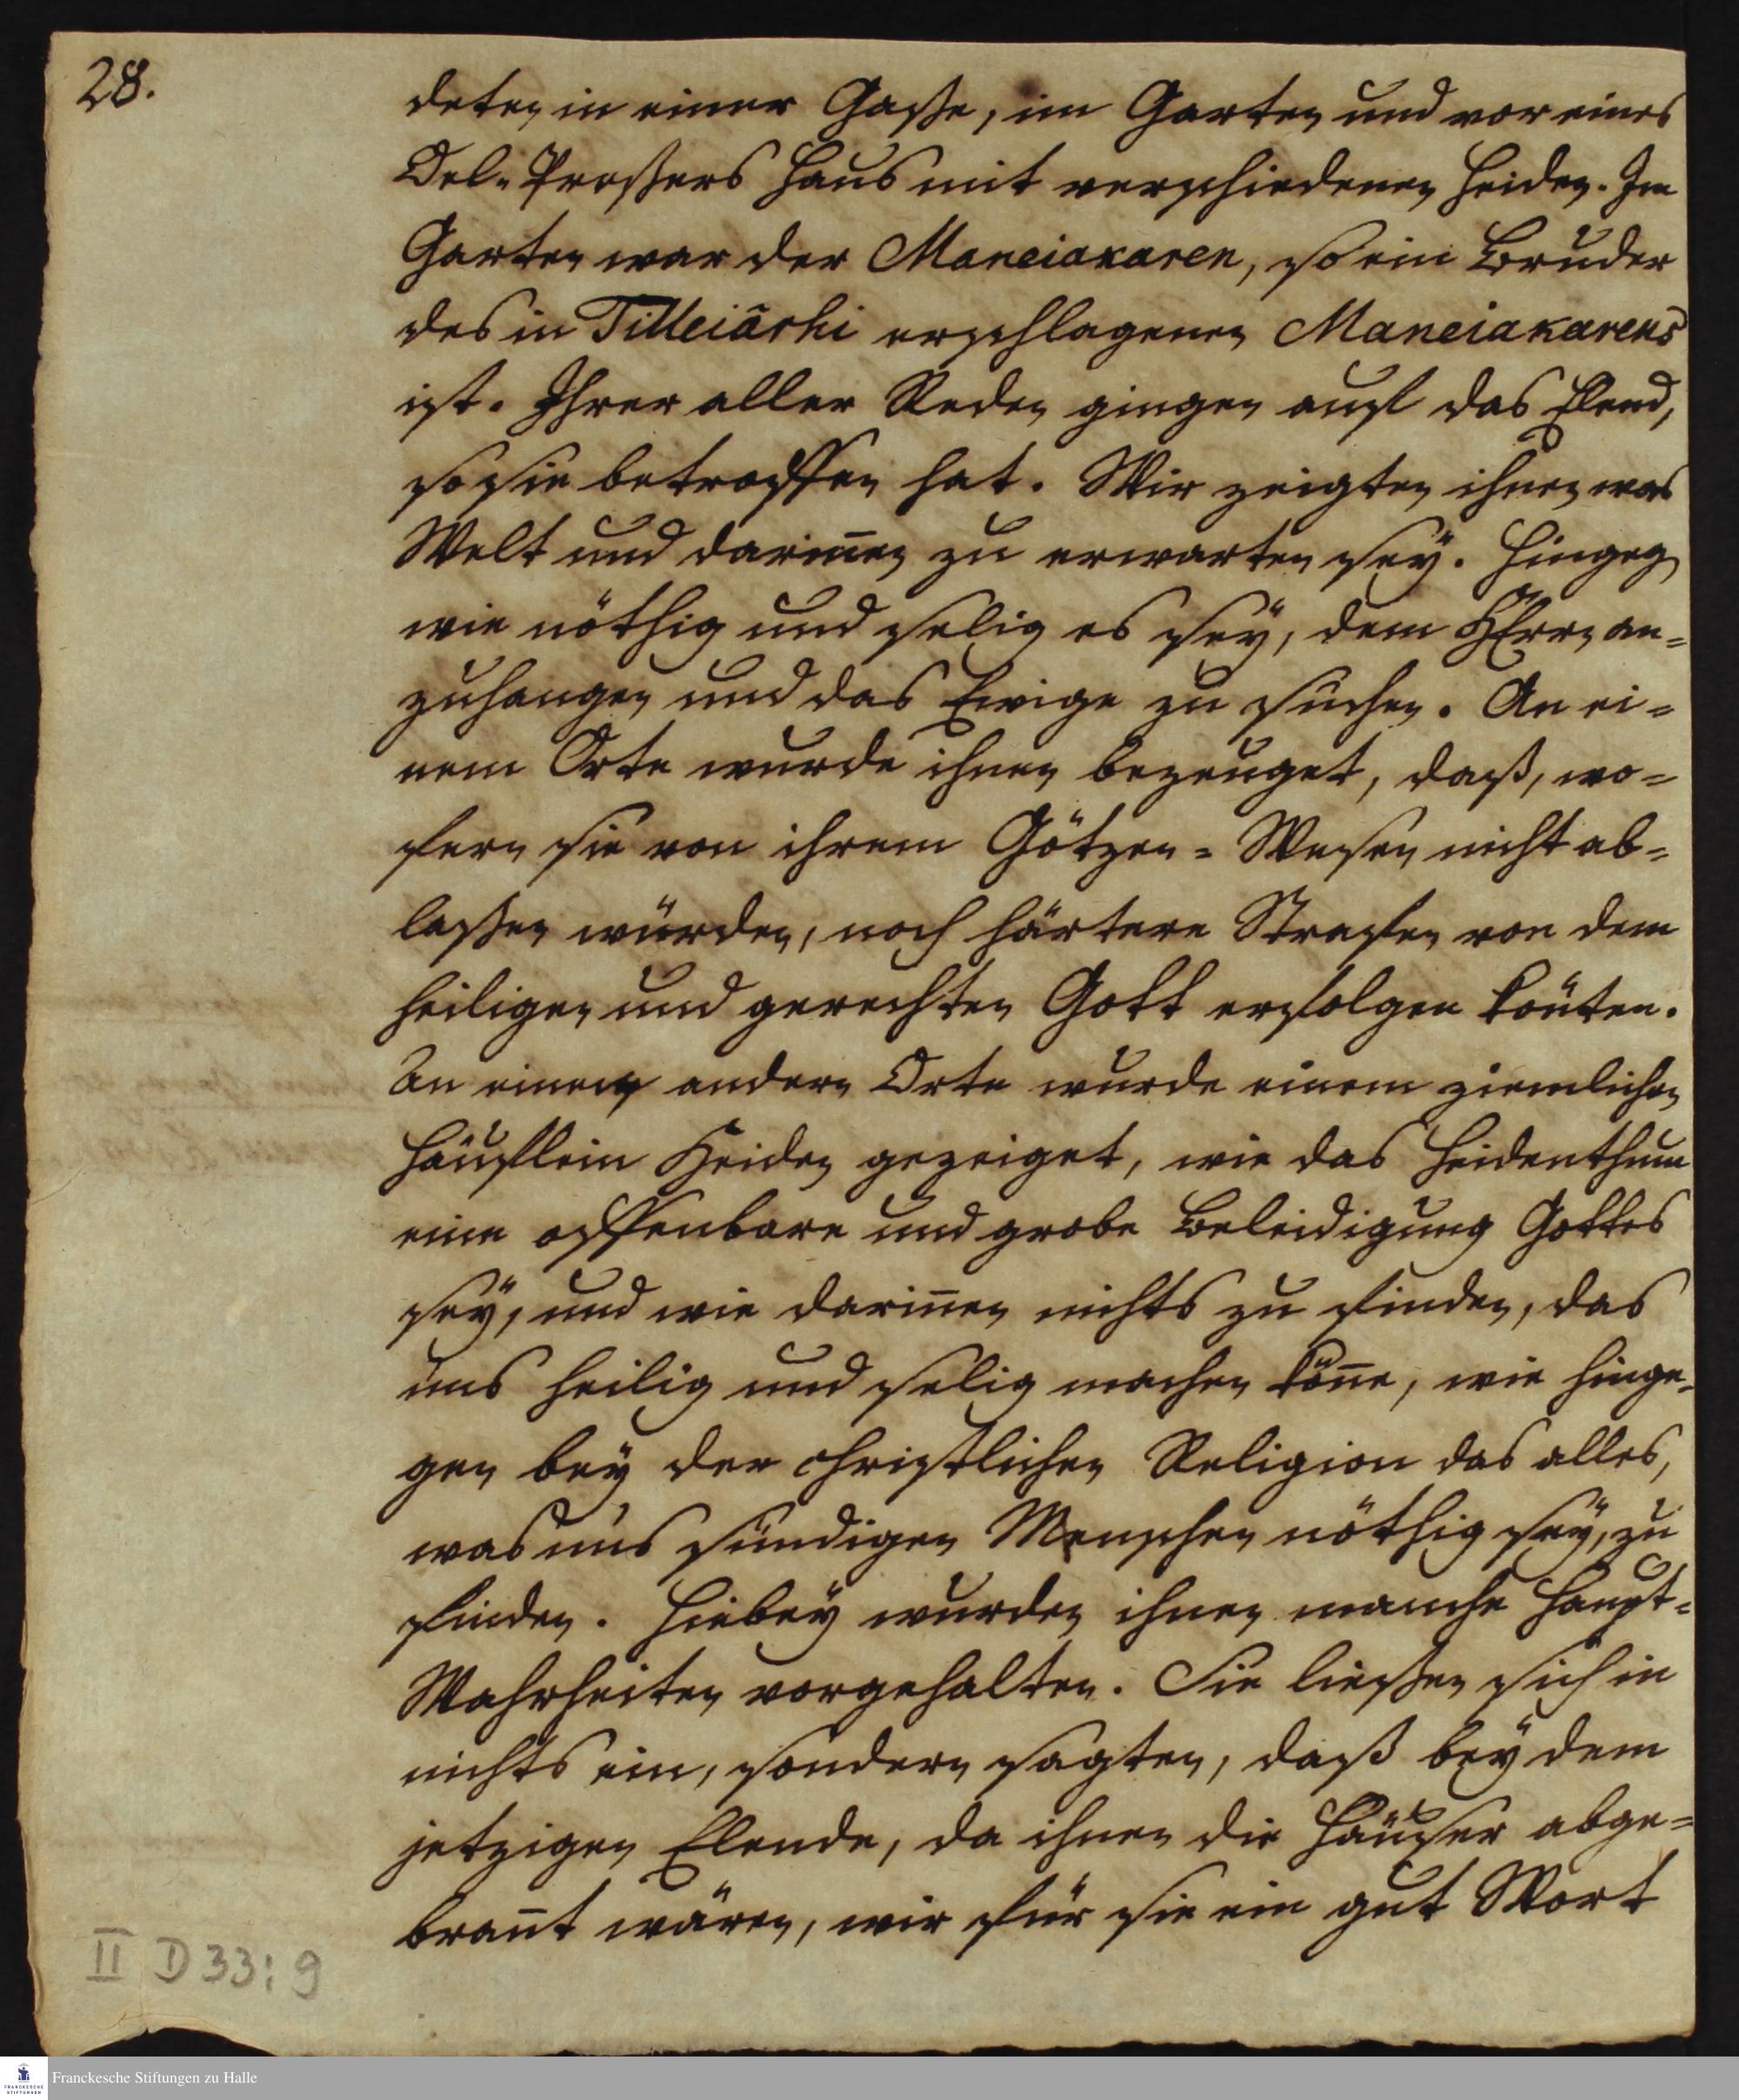 28.
deten in einer Gasse, im Garten und vor eines
Oel-Pressers Haus mit verschiedenen Heiden. Im
Garten war der Maneiakaren, so ein Bruder
des in Tilleiârhi erschlagenen Maneiakarens
ist. Ihrer aller Reden gingen auf das Elend,
so sie betroffen hat. Wir zeigten ihnen was
Welt und darin̄en zu erwarten sey. Hingegen
wie nöthig und selig es sey, dem HErrn an-
zuhangen und das Ewige zu suchen. An ei-
nem Orte wurde ihnen bezeuget, daß, wo-
fern sie von ihrem Götzen-Wesen nicht ab-
lassen würden, noch härtere Strafen von dem
heiligen und gerechten Gott erfolgen kön̄ten.
An einem andern Orte wurde einem ziemlichen
Häuflein Heiden gezeiget, wie das Heidenthum
eine offenbare und grobe Beleidigung Gottes
sey, und wie darin̄en nichts zu finden, das
uns heilig und selig machen kön̄e, wie hinge-
gen bey der christlichen Religion das alles,
was uns sündigen Menschen nöthig sey, zu
finden. Hiebey wurden ihnen manche Haupt-
Wahrheiten vorgehalten. Sie liessen sich in
nichts ein, sondern sagten, daß bey dem
jetzigen Elende, da ihnen die Häuser abge-
bran̄t wären, wir für sie ein gut Wort
II D 33:9
FRANCKESCHE STIFTUNGEN
Franckesche Stiftungen zu Halle